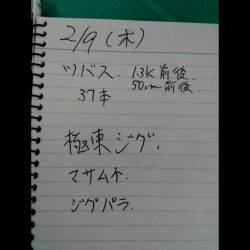 2/9(木)
ツバス. 1.3K前後.
50cm前後.
37本
極東ジグ.
マサムネ
ジグパラ.